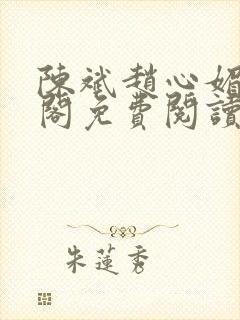 陳斌趙心媚
閣免費閱讀
朱蓮秀